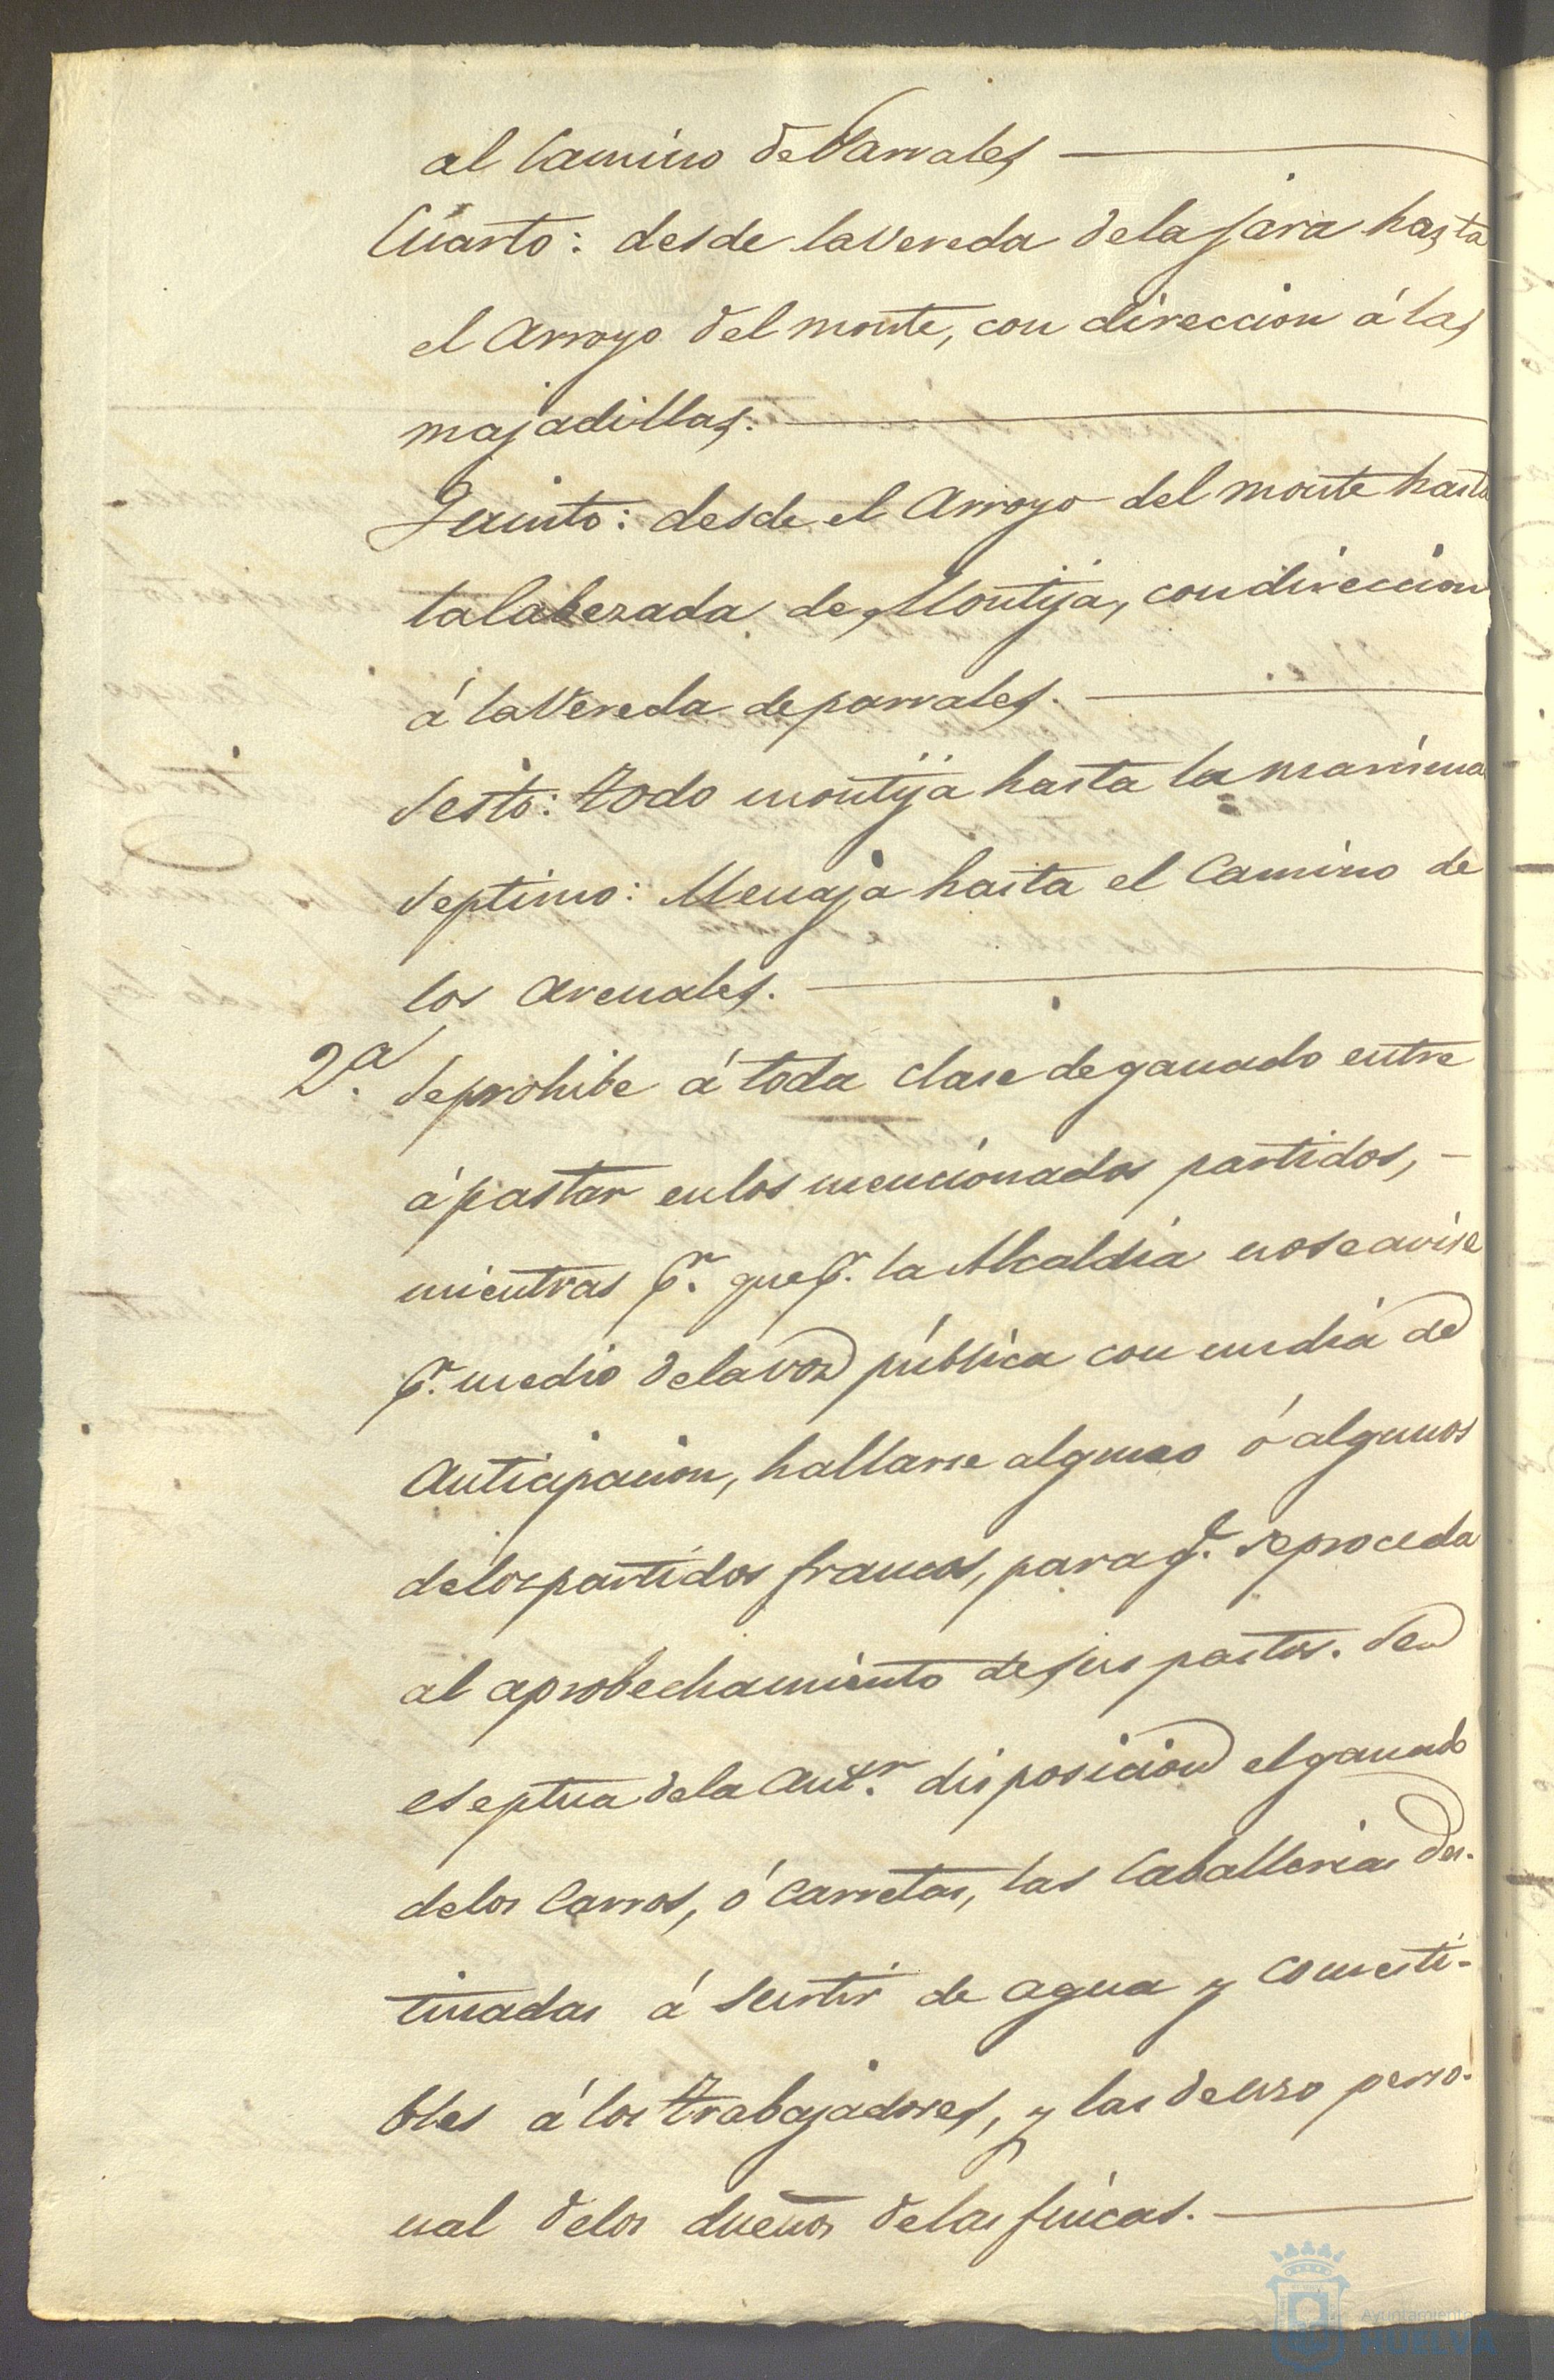 al Camino de Parrales
Cuarto: desde la Vereda de la jara hasta
el Arroyo del monte, con direccion á las
majadillas.
Quinto: desde el Arroyo del monte hasta
la Cabezada de Montija, con direccion
á la Vereda de parrales.
Sesto: todo montija hasta la marisma
Septimo: Menaja hasta el Camino de
los Arenales.
2.ª Se prohibe á toda clase de ganado entre
á pastar en los mencionados partidos,
mientras p.r que p.r la Alcaldia no se avise
p.r medio de la voz pública con un dia de
Anticipacion, hallarse alguno ó algunos
de los partidos francos, para q.e se proceda
al aprobechamiento de sus pastos. Se
eseptua de la ant.r disposicion el ganado
de los Carros, ó Carretas, las Caballerias des-
tinadas á surtir de agua y comesti-
bles á los trabajadores, y las de uso perso-
nal de los dueños de las fincas.
Ayuntamiento
HUELVA